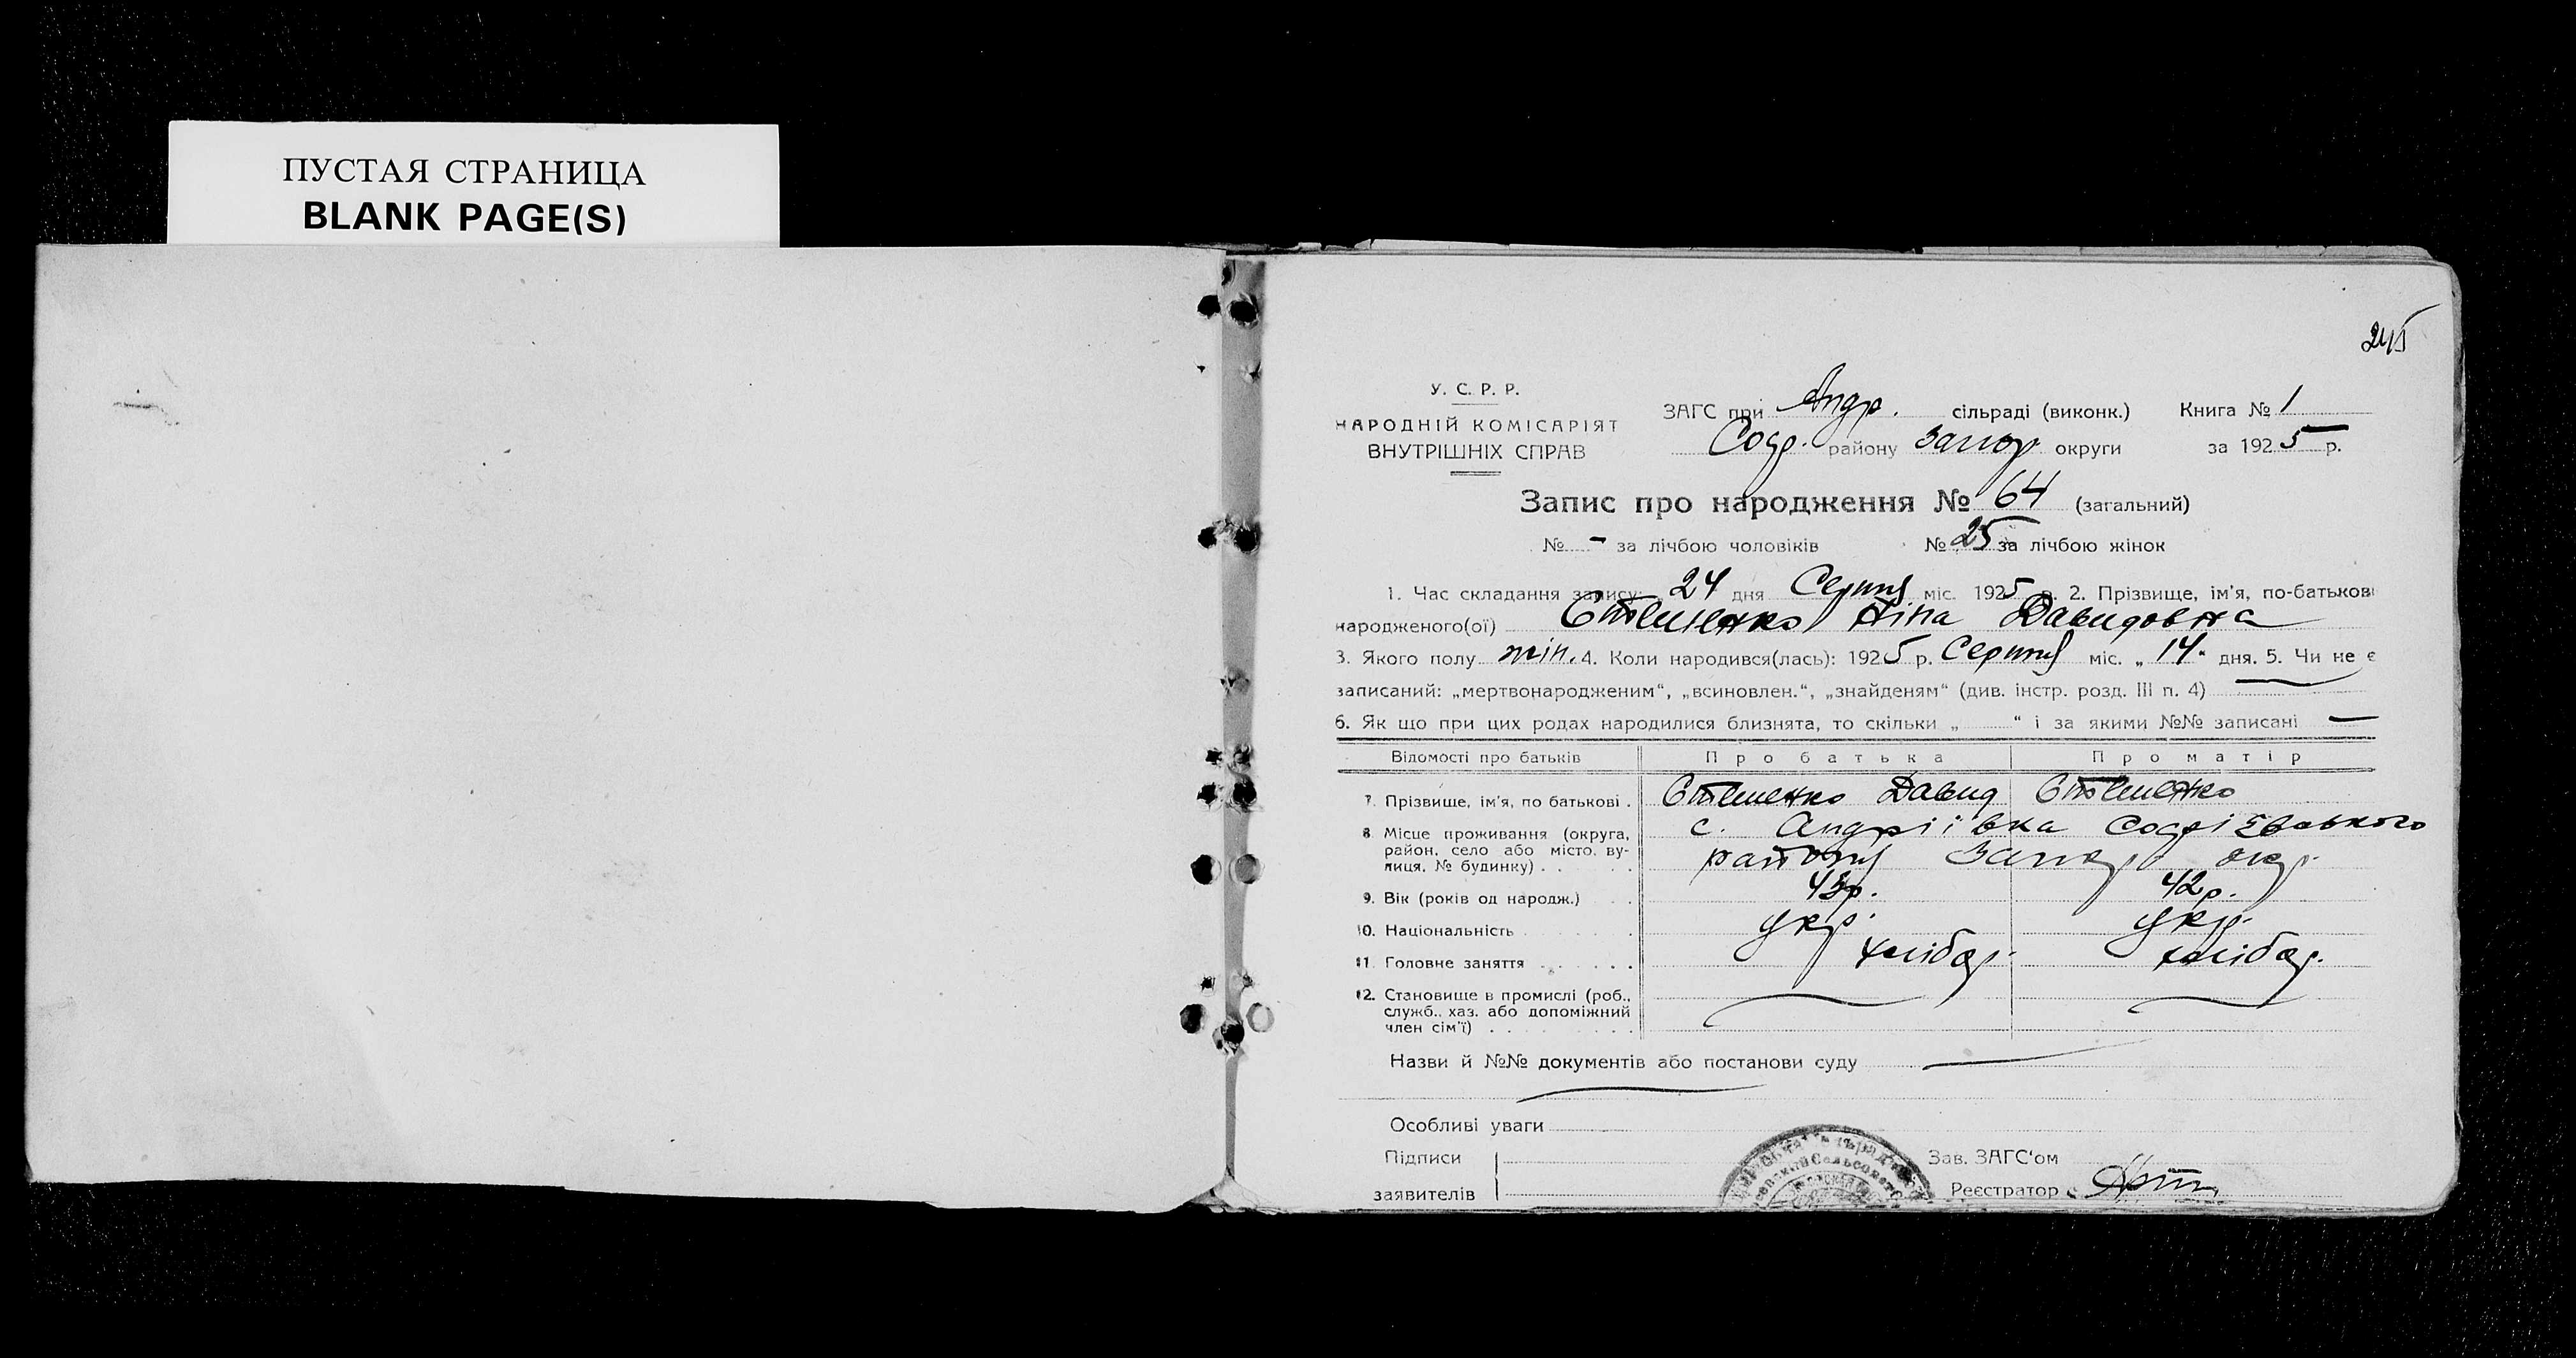 ПУСТАЯ СТРАНИЦА
BLANK PAGE(S)
245
У. С. Р. Р.
НАРОДНІЙ КОМІСАРІЯТ
ВНУТРІШНІХ СПРАВ
ЗАГС при Андр. сільраді (виконк.) Книга № 1
району Запор. округи за 1925 р.
Запис про народження № 64 (загальний)
№ - за лічбою чоловіків № 25 за лічбою жінок
1. Час складання запису: „24 дня Серпня міс. 1925 р. 2. Прізвище, ім'я, по-батькові
народженого(ої) Стешенко Ніна Давидовна
3. Якого полу жін. 4. Коли народився(лась): 1925 р. Серпня міс. „14“ дня. 5. Чи не є
записаний: „мертвонародженим“, „всиновлен.“, „знайденям“ (див. інстр. розд. III п. 4) —
6. Як що при цих родах народилися близнята, то скільки „ “ і за якими №№ записані —
Відомості про батьків Про батька Про матір
7. Прізвище, ім'я, по батькові . Стешенко Давид Стешенко
8. Місце проживання (округа, с. Андріївка
район, село або місто, ву-
лиця, № будинку) . . района Запор. окр.
9. Вік (років од народж.) 43р. 42р.
10. Національність укр. укр.
11. Головне заняття хлібор. хлібор.
12. Становище в промислі (роб.,
служб., хаз. або допоміжний
член сім'ї)
Назви й №№ документів або постанови суду —
Особливі уваги
Підписи Зав. ЗАГС'ом
заявителів Реєстратор